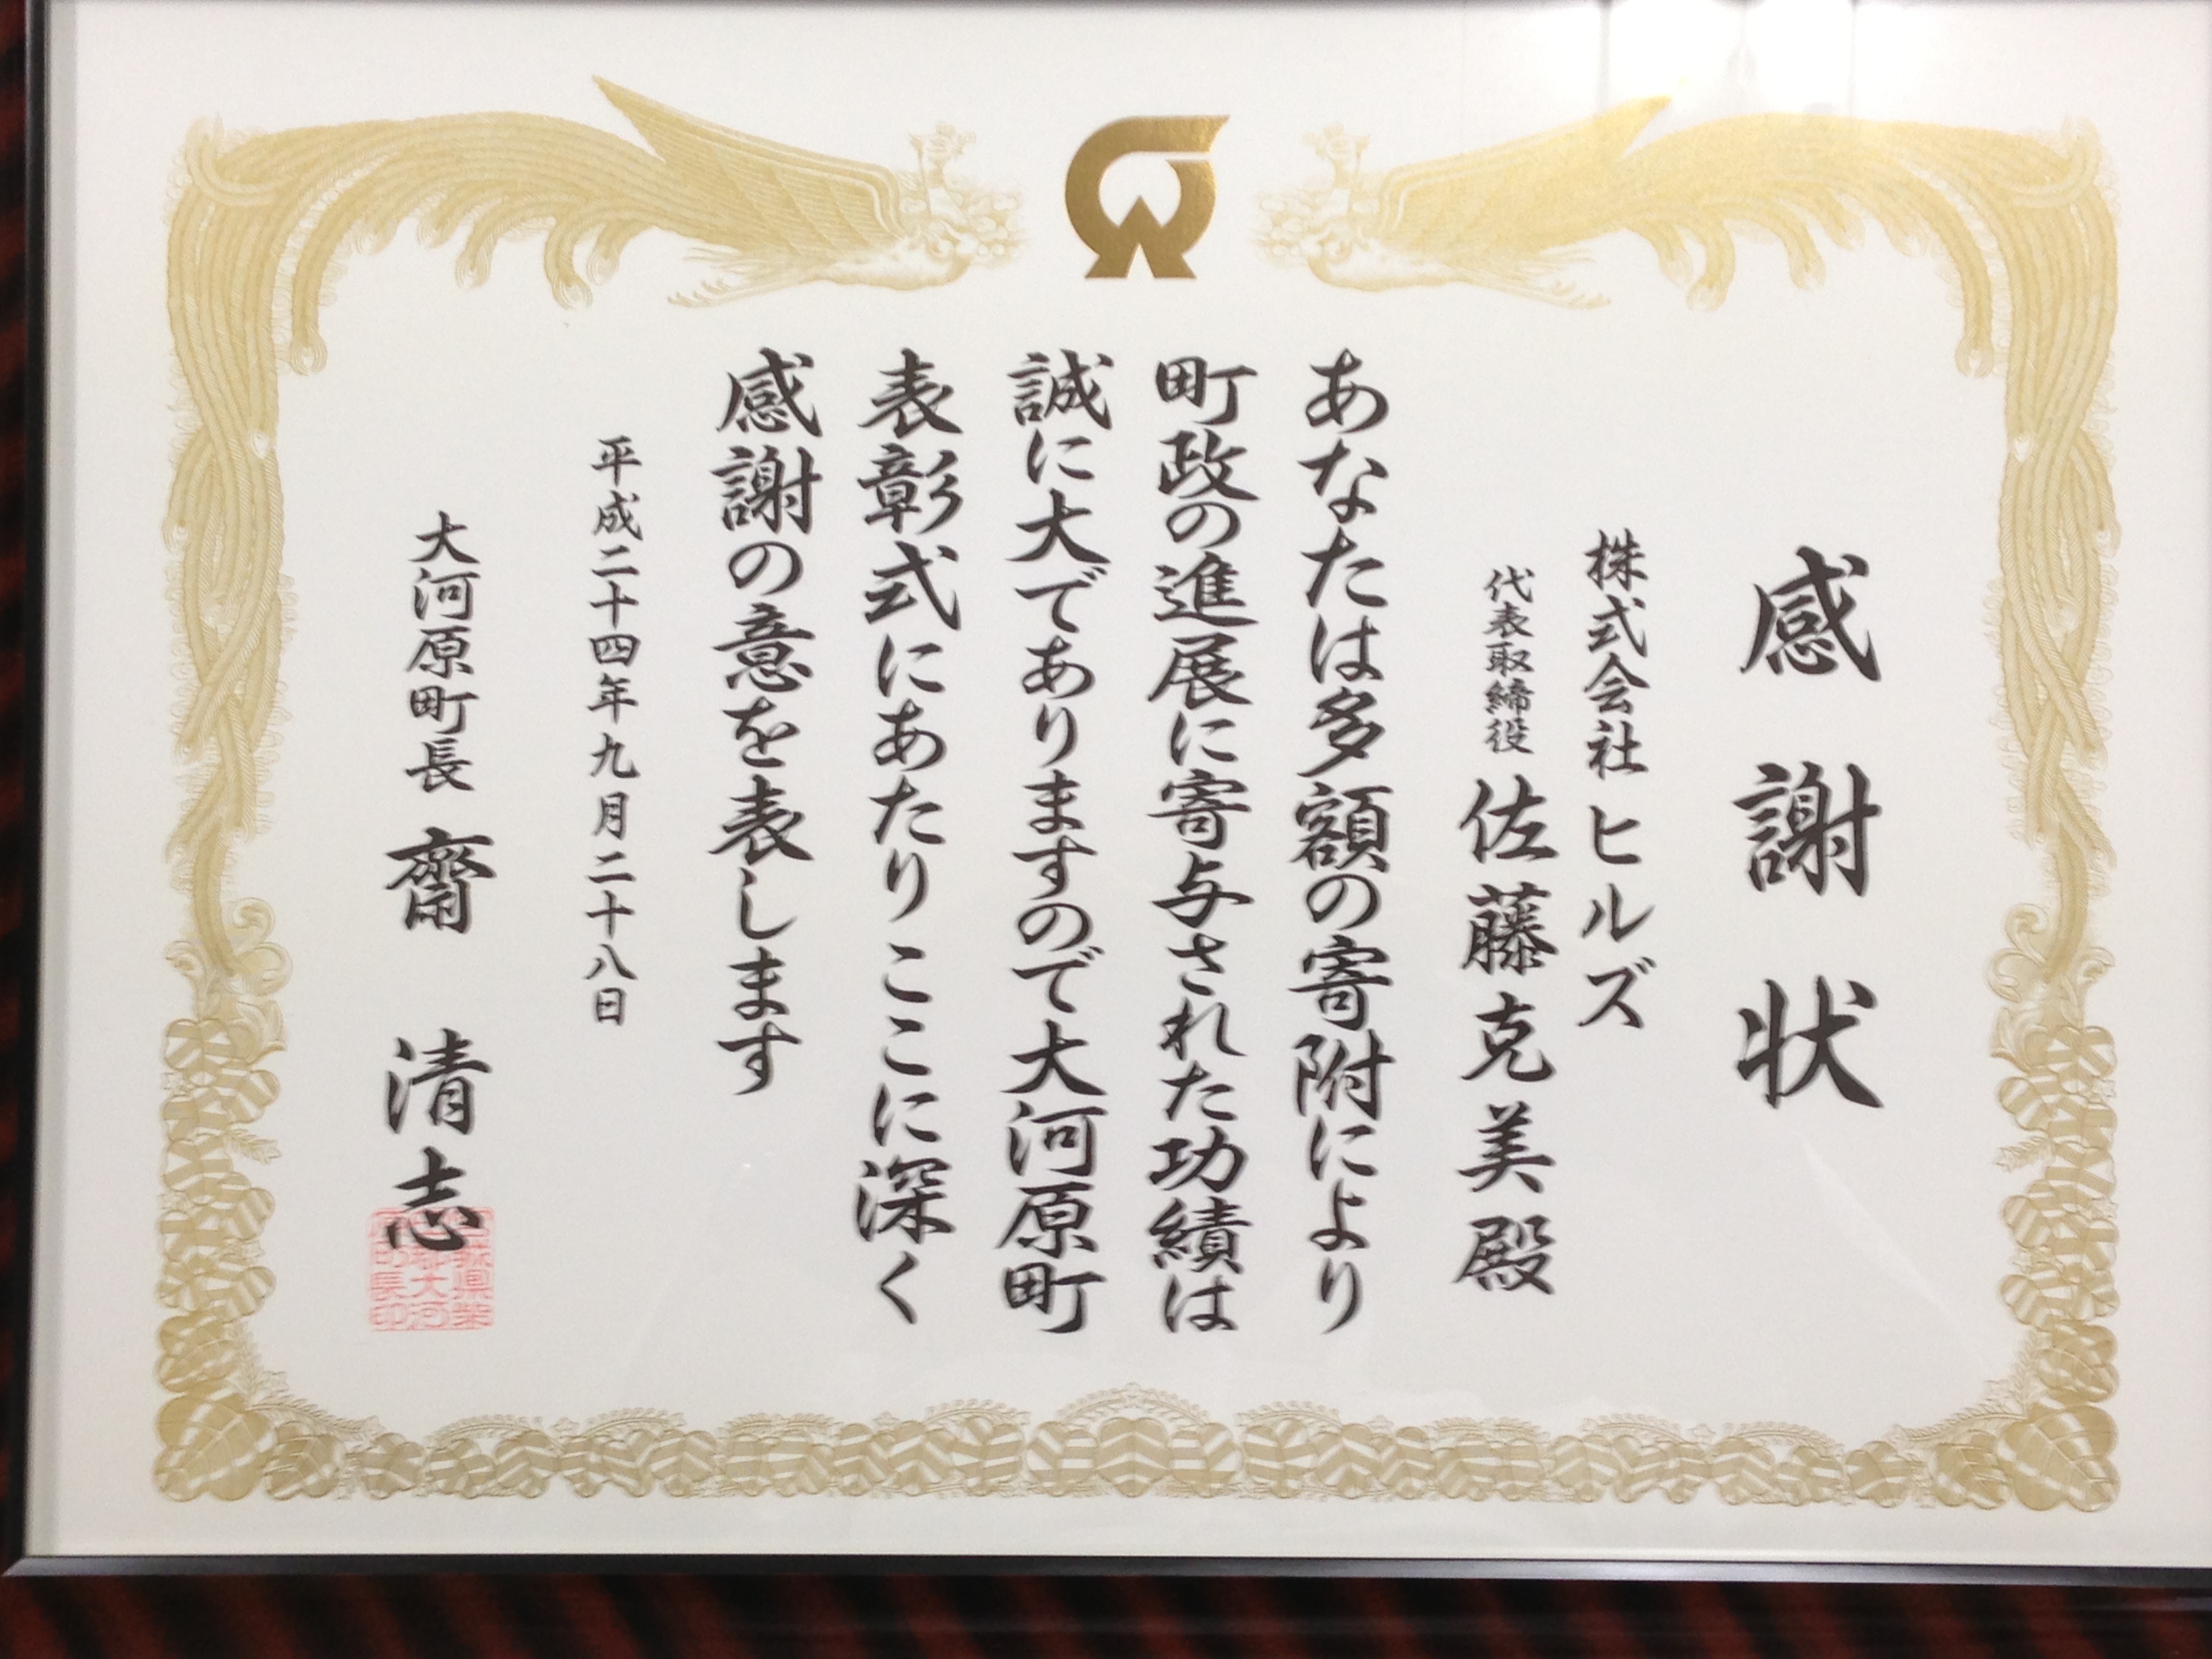 感謝状
株式会社ヒルズ
代表取締役 佐藤克美殿
あなたは多額の寄附により
町政の進展に寄与された功績は
誠に大でありますので大河原町
表彰式にあたりここに深く
感謝の意を表します
平成二十四年九月二十八日
大河原町長 齋 清志